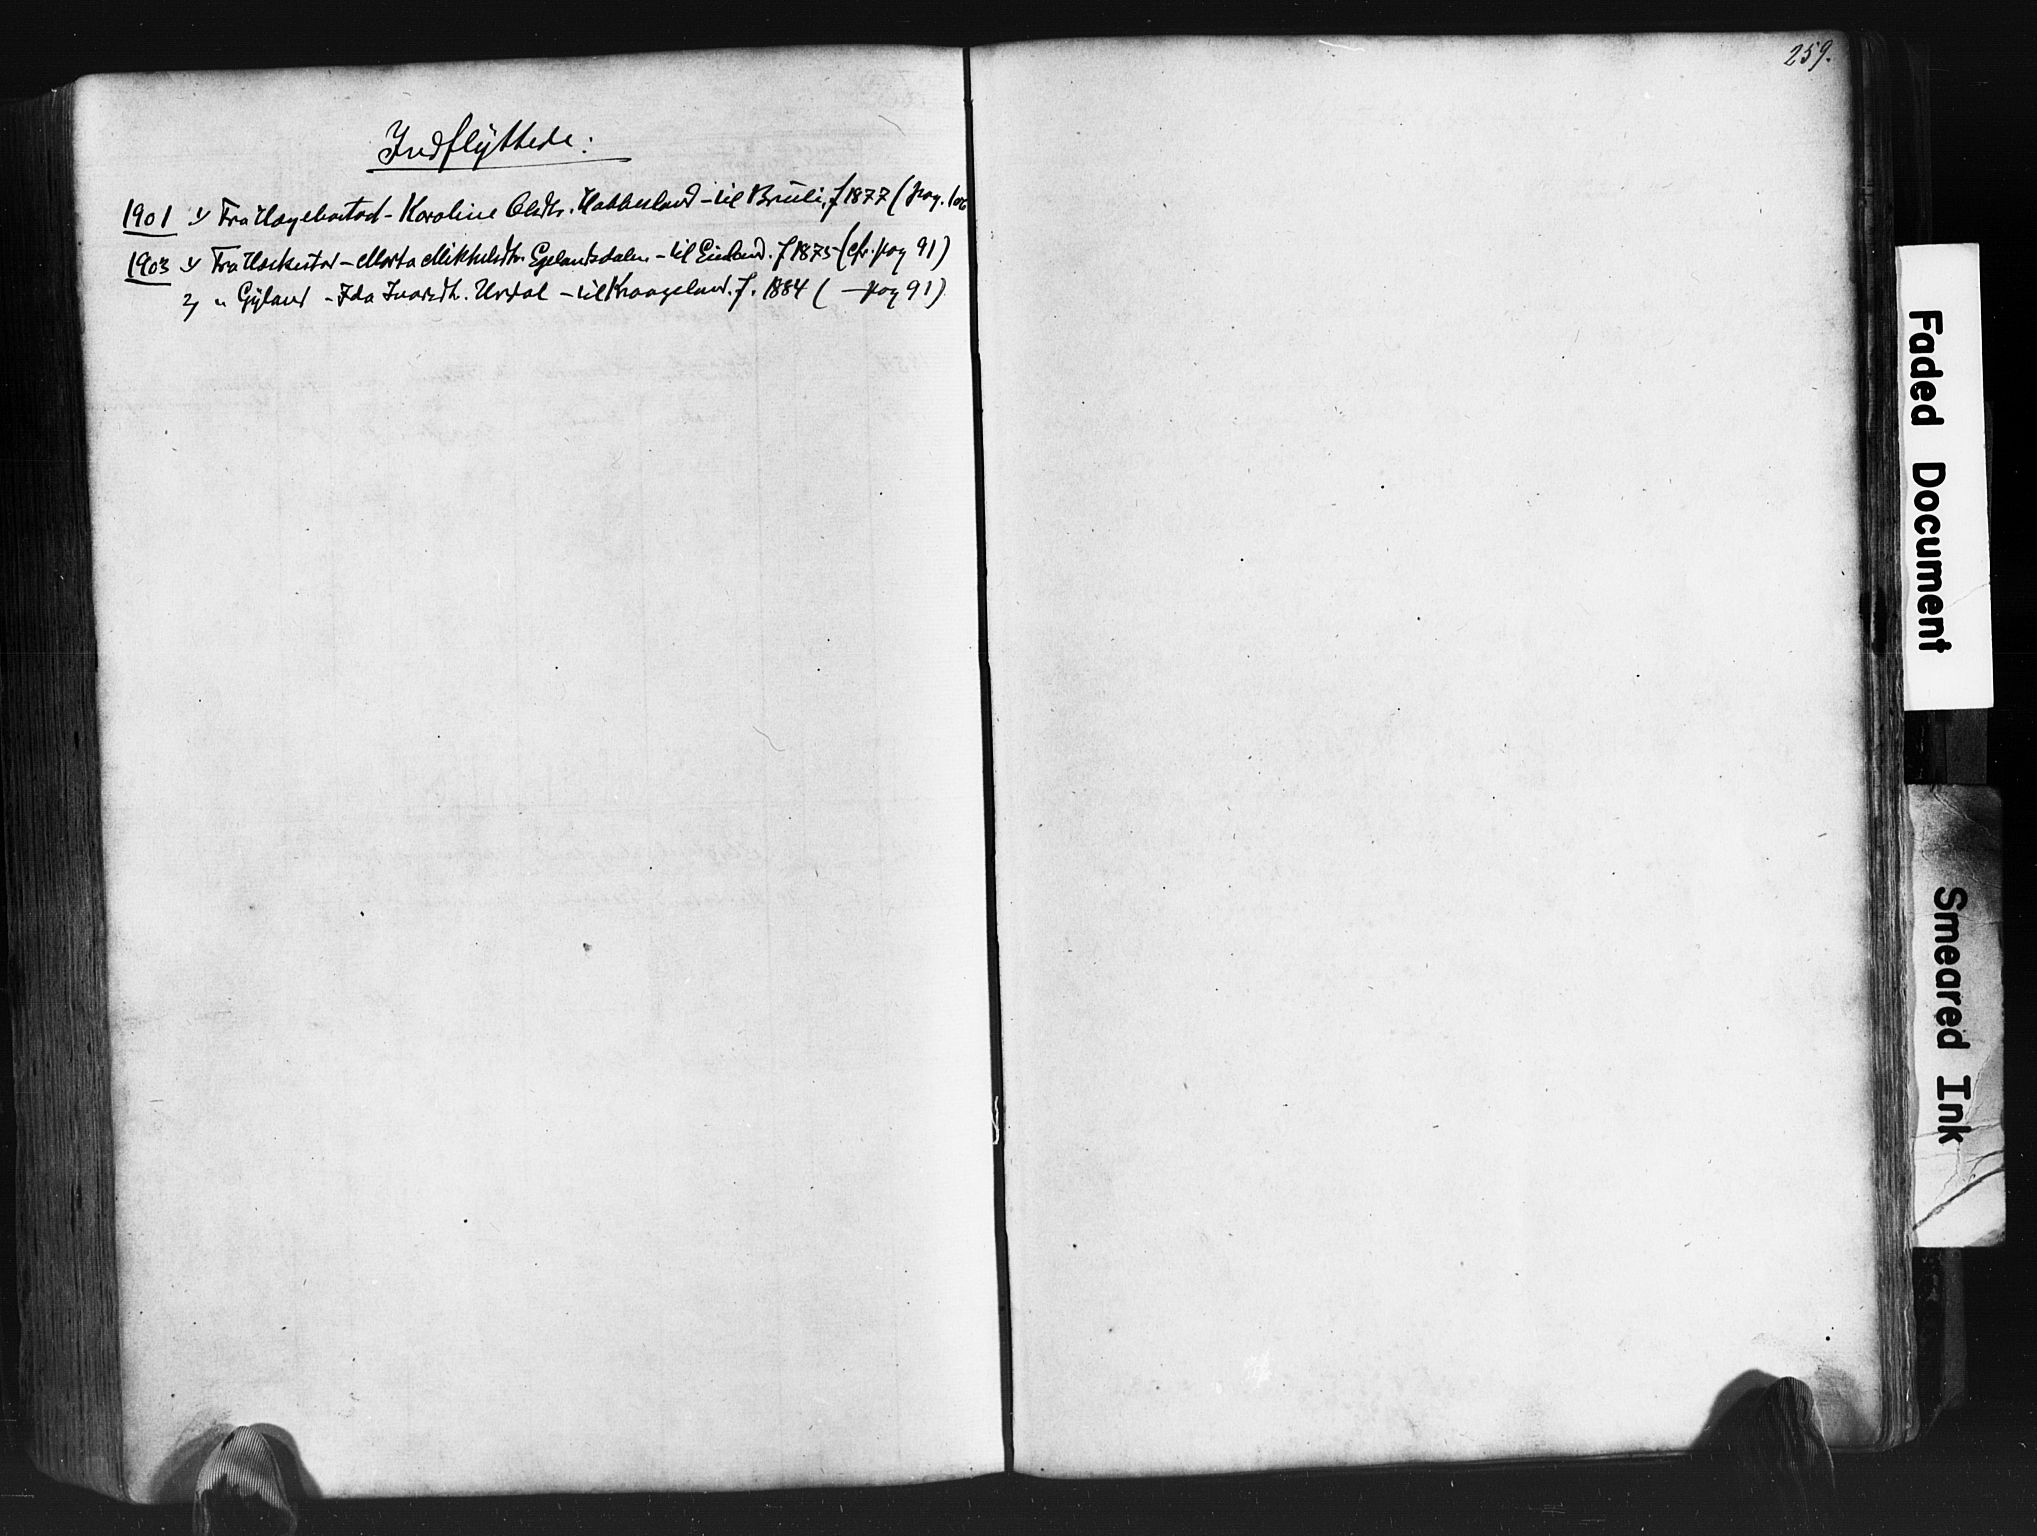 259.
Indflyttede:
1901 1) Fra Hægebostad - Karoline Olsdtr. Habbesland - til Bruli, f 1877 (pag. 106
1903 1) Fra Hæskestad - Marta Mikkelsdtr. Egelandsdalen - til Eieland. f 1875 (cfr. pag 91)
2) " Gyland - Ida Ivarsdtr. Urdal - til Kraageland. f. 1884 ( — pag 91)
Faded Document
Smeared Ink